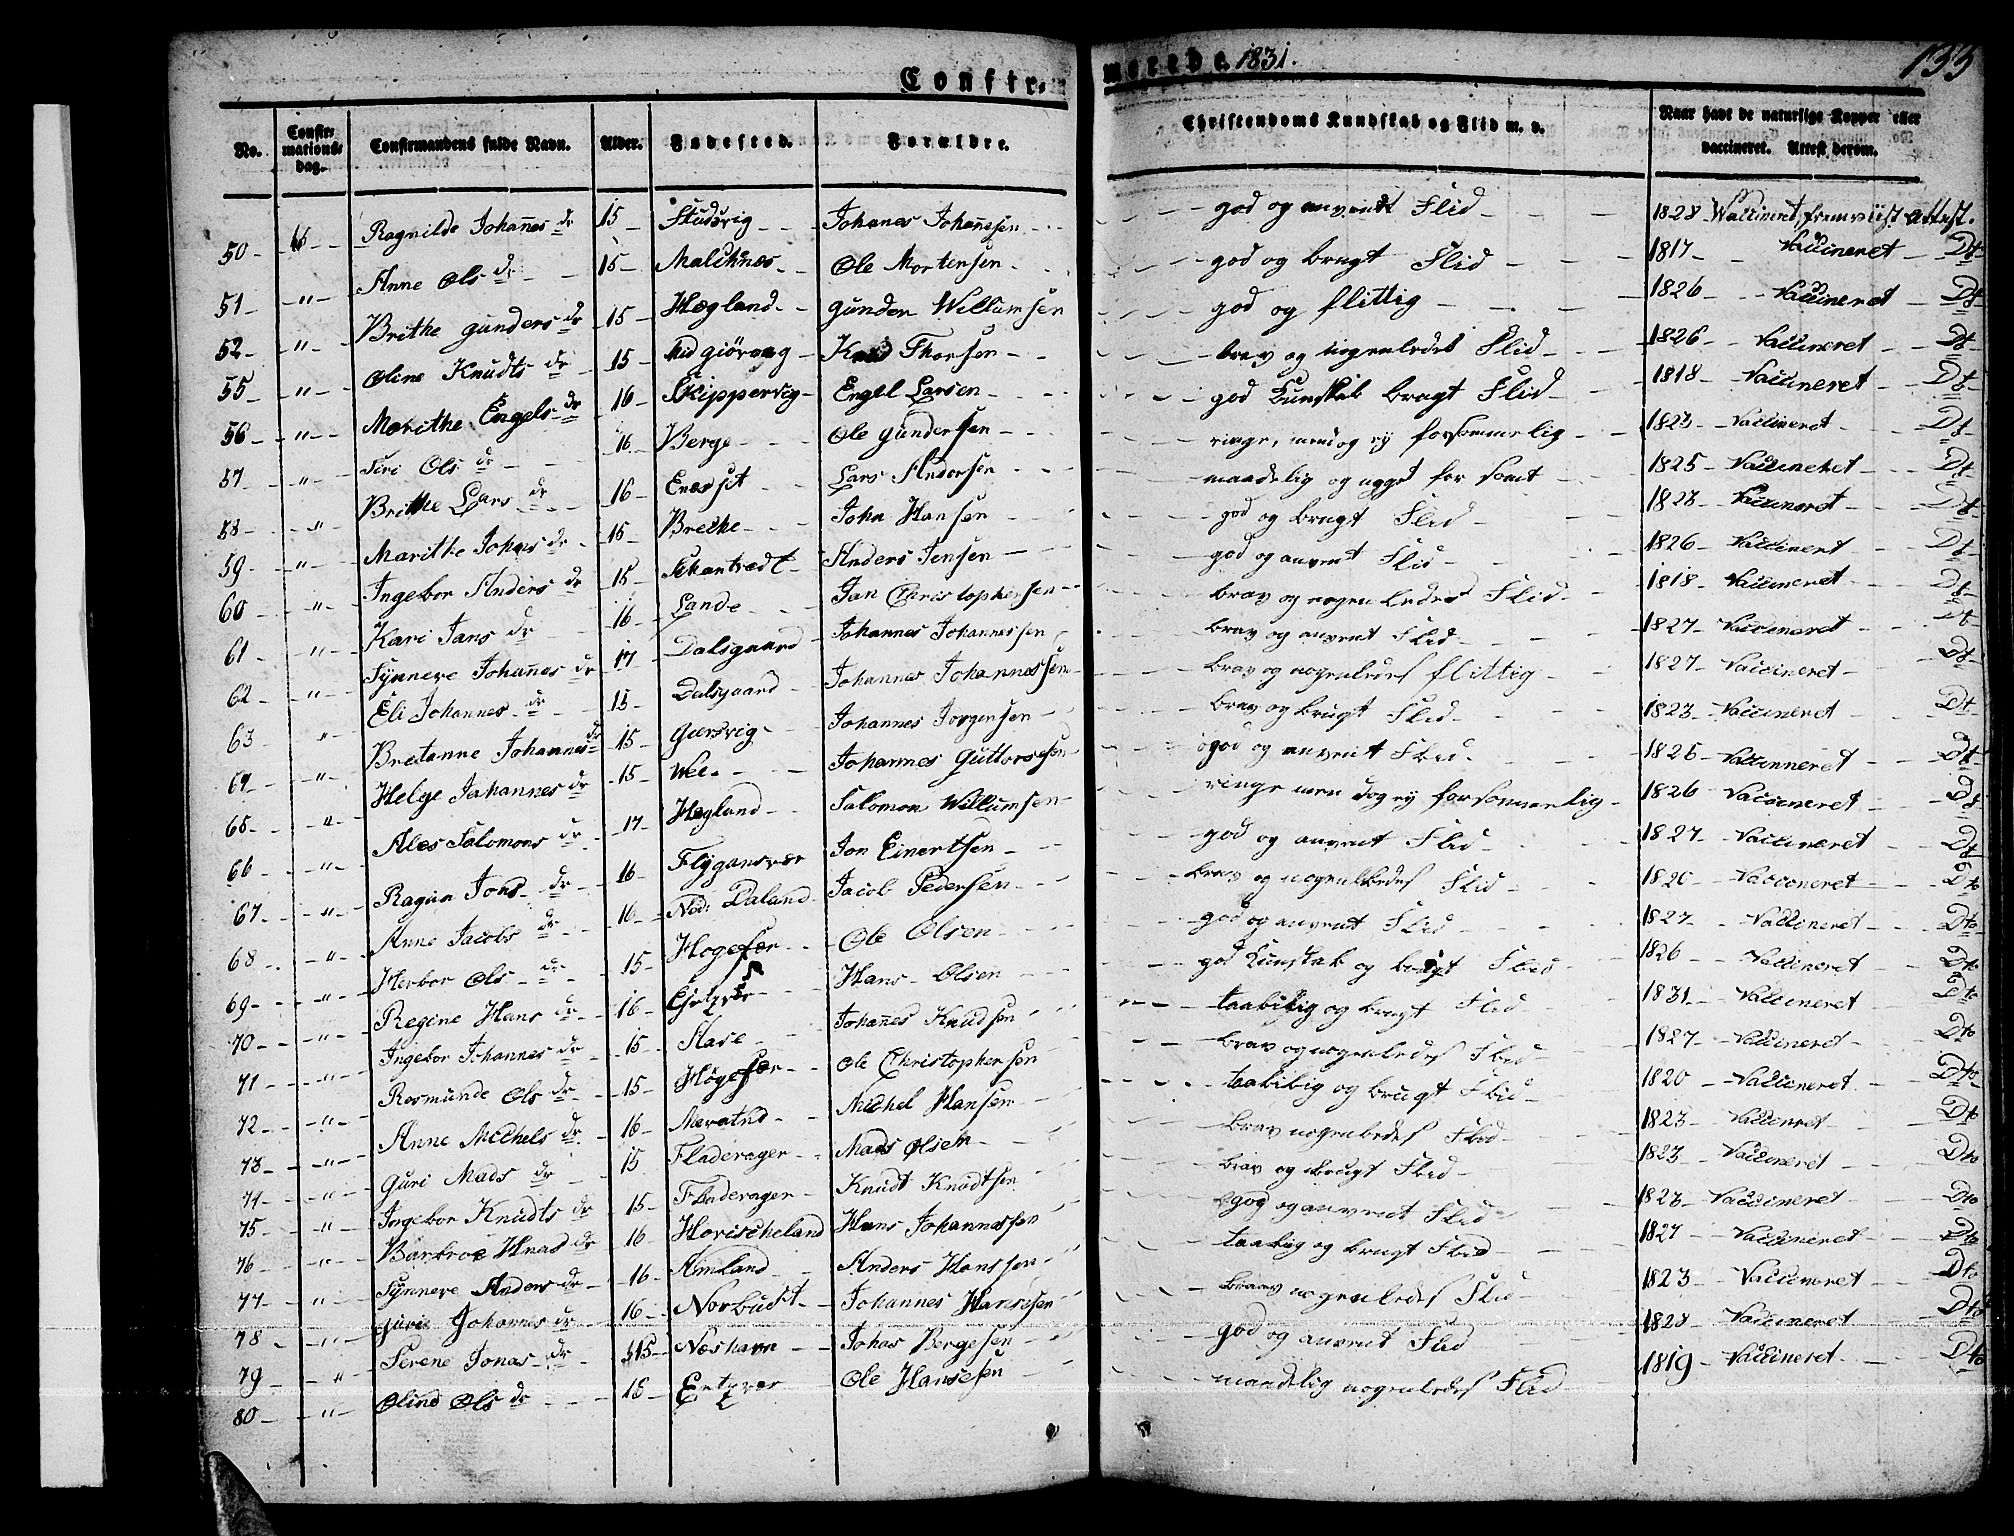 Confir- merede 1831. 133
No. Confirmationsdag. Confirmandens fulde Navn. Alder. Fødested. Forældre. Christendoms Kundskab og Flid m. v. Naar havt de naturlige Kopper eller vaccineret. Attest derom.
50 - 16 - Ragnilde Johannes dr 15 - Studsvig - Johanes Johanesen - god og anvendt Flid - 1828 - Waccinered, fremviist attest.
51 - " - Anne Ols dr - 15 - Malchnæs - Ole Mortensen - god og brugt Flid - 1817 - Vaccineret - Dt
52 - " - Brithe gunders dr - 15 - Hægland - gunder Willumsen god og flittig - 1826 - Vaccineret - Dt
55 - " - Oline Knudts dr - 15 - Mid giörgag - Knud Thorsen - brav og nogenledes Flid - 1826 - Vaccineret - Dt
56 - " - Marithe Engels dr - 16 - Skippervig - Engel Larsen - god Kunskab brugt Flid - 1818 - Vaccineret - Dt
57 - " - Siri Ols dr - 16 - Berge - Ole gundersen - ringe, mend og ej forsommelig - 1823 - Vaccineret - Dt
58 - " - Brithe Lars dr - 16 - Lars Andersen - maadelig og for somt - 1825 - Vaccineret - Dt
59 - " - Marithe Johns dr - 15 - Breche - John Hansen - god og brugt Flid - 1823 - Vaccineret - Dt
60 - " - Ingebor Anders dr - 15 - Anders Jensen - god og anvent Flid - 1826 - Vaccinert - Dt
61 - " - Kari Jans dr - 16 - Lande - Jan Christophersen - brav og nogenledes Flid - 1818 - Vaccineret - Dt
62 - " - Synneve Johannes dr - 17 - Dalsgaard - Johannes Johannessen brav og anvent Flid - 1827 - Vaccineret - Dt
63 - " - Eli Johannes dr - 15 - Dalsgaard - Johannes Johannessen - brav og nogenledes flittig - 1827 - Vaccineret - Dt
64 - " - Bretanne Johannes dr - 15 - Giersvig - Johannes Jorgensen - brav og brugt Flid - 1823 - Vaccineret - Dt
65 - " - Helge Johannes dr - 15 - Wee - Johannes Guttormsen - god og anvent Flid - 1825 - Vaccinneret - Dt
66 - " - Ales Salomons dr - 17 - Hægland - Salomon Willumsen - ringe men dog ej forsommelig - 1826 - Vaccineret - Dt
67 - " - Ragna Jons dr - 16 - Flygansvær Jon Einertsen - god og anvent Flid - 1827 - Vaccineret - Dt
68 - " - Anne Jacobs dr - 16 - Ned: Daland Jacob Pedersen - brav og nogenledes Flid - 1820 - Vaccineret - Dto
69 - " - Herbor Ols dr - 15 - Ole Olsen - god og anvent Flid - 1827 - Vaccineret - Dto
70 - " - Regine Hans dr - 16 - Hans Olsen - god Kunskab og brugt Flid - 1826 - Vaccineret - Dto
71 - " - Ingebor Johannes dr - 15 - Johannes Knudsen taabelig og brugt Flid - 1831 - Vaccineret - Dto
72 - " - Rosmunde Ols dr - 15 - Ole Christophersen brav og nogenledes Flid - 1827 - Vaccineret - Dto
73 - " - Anne Michels dr - 16 - Michel Hansen - taabelig og brugt Flid - 1820 - Vaccineret - Dto
74 - " - Guri Mads dr - 15 Fladerager - Mads Olsen - brav nogenledes Flid - 1823 - Vaccineret - Dto
75 " - Ingebor Knudts dr - 15 - Fladerager - Knudt Knudtsen brav og brugt Flid - 1823 - Vaccineret - Dto
76 - " - Barbroe Hans dr 16 - Hans Johannessen god og anvendt Flid - 1823 - Vaccineret - Dto
77 - " - Synneve Anders dr - 16 - Amland - Anders Hanssen - taabelig og brugt Flid - 1827 - Vaccineret - Dto
78 - " - Gurie Johannes dr - 16 - Norbudst - Johannes Hanssen brav nogenledes Flid - 1823 - Vaccineret - Dto
79 - " - Serene Jonas dr - 15 - Næshavn - Johas Bergesen - god og anvent Flid 1828 - Vaccineret - Dto
80 - " - Olind Ols dr - 16 - Entzvær Ole Hansesen - maadelig nogenledes Flid 1819 - Vaccineret - Dto